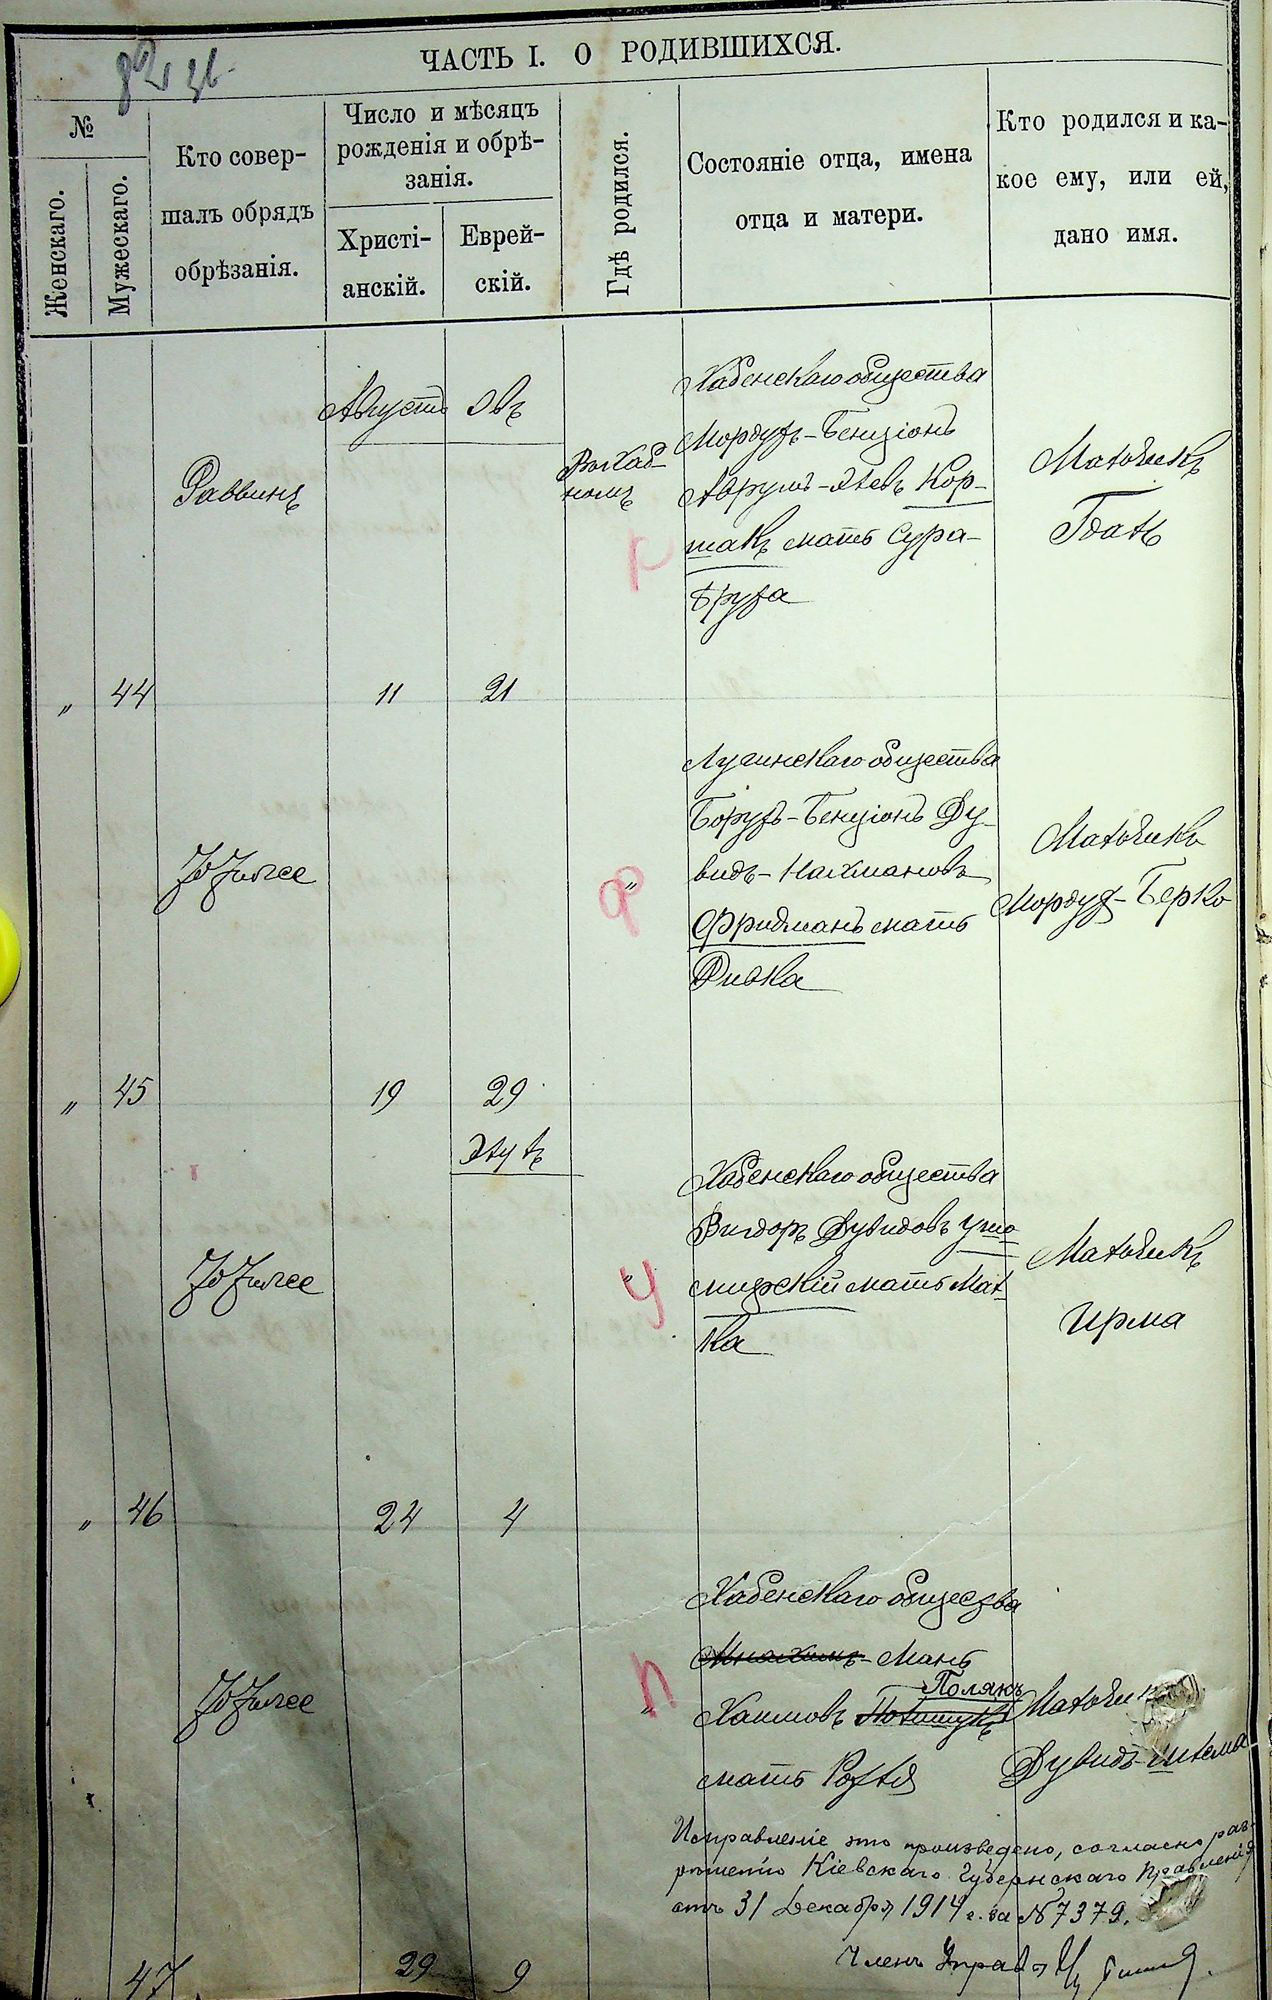 ЧАСТЬ I. О РОДИВШИХСЯ.
№
Женскаго.
Мужескаго.
Кто совер-
шалъ обрядъ
обрѣзанія.
Число и мѣсяцъ
рожденія и обрѣ-
занія.
Христі-
анскій.
Еврей-
скій.
Гдѣ родился.
Состояніе отца, имена
отца и матери.
Кто родился и ка-
кое ему, или ей,
дано имя.
Августъ
Овъ
Раввинъ
Въ Хаб-
номъ
Хабенскаго общества
Мордухъ-Бенціонъ
Аврумъ-Лѣевъ Кор-
макъ мать Сура-
Бруха
Мальчикъ
Гдаль
К
" 44
11
21
Лугинскаго общества
Борухъ-Бенціонъ Ду-
видъ-Нахмановъ
Фридманъ мать
Ривка
То же
"
Ф
Мальчикъ
Мордух-Берко
" 45
19
29
Элулъ
Хабенскаго общества
Вигдоръ Дувидовъ Ушо-
мирскій мать Мал-
ка
То же
"
У
Мальчикъ
Ирма
" 46
24
4
Хабенскаго общества
Мнахимъ-Мань
Полякъ
Хаимовъ
мать Рохля
То же
"
П
Дувидъ-Шлема
Исправленіе это произведено, согласно раз-
рѣшенію Кіевскаго Губернскаго Правленія
отъ 31 Декабря 1914 г. за № 7379.
Членъ Управы
47
29
9